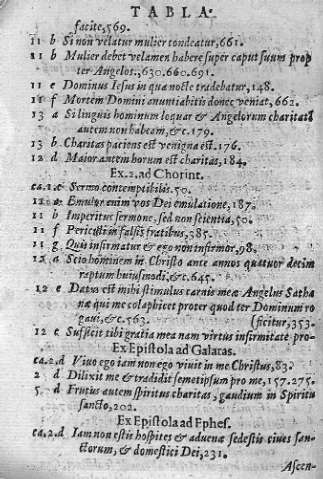 TABLA.
facite, 569.
11 b Si non velatur mulier tondeatur, 661.
11 b Mulier debet velamen habere super caput suum prop
ter Angelos., 630. 660. 691.
11 e Dominus Iesus in qua nocte tradebatur, 148.
11 f Mortem Domini anuntiabitis donec veniat, 662.
13 a Si linguis hominum loquar & Angelorum charitatē
autem non habeam, &c. 179.
13 b. Charitas paciens est venigna est 176.
12 d Maior autem horum est charitas, 184.
Ex. 2. ad Chorint.
ca. 1. e Sermo contemptibilis. 50.
Emulor enim vos Dei emulatione, 187.
11 b Imperitus sermone, sed non scientia, 50.
11 f Periculis in falsis fratibus, 385.
11 g. Quis infirmatur & ego non infirmor. 98.
12. a Scio hominem in Christo ante annos quatuor decim
raptum huiusmodi, &c. 645.
12 e Datus est mihi stimulus carnis meæ Angelus Satha
næ qui me colaphicet propter quod ter Dominum ro
gaui, &c. 563.
(ficitur, 353.
12 e Sufficit tibi gratia mea nam virtus infirmitate pro-
Ex Epistola ad Galatas.
ca. 2. d Viuo ego iam non ego viuit in me Christus, 83.
2 d Dilixit me & tradidit semetipsum pro me, 157. 275.
5. d Frutus autem spiritus charitas, gaudium in Spiritu
sancto, 202.
Ex Epistola ad Ephes.
ca. 2. d Iam non estis hospites & aduenæ sed estis ciues san-
ctorum, & domestici Dei, 231.
Ascen-